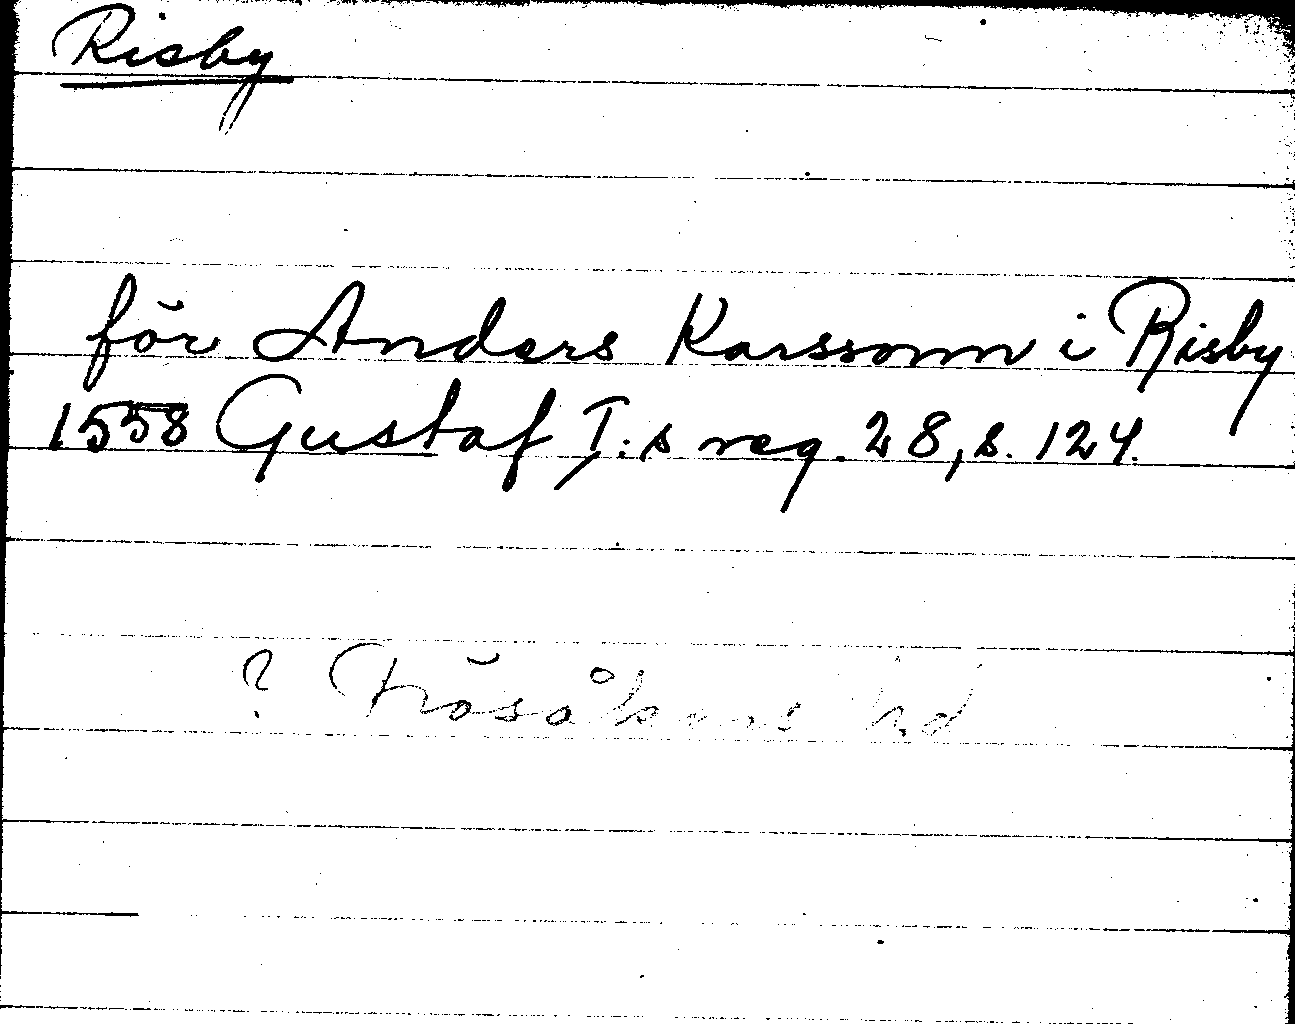 Risby
för Anders Karssonn i Risby
1558 Gustaf I:s reg. 28, s. 124.
? Frösåkers hd